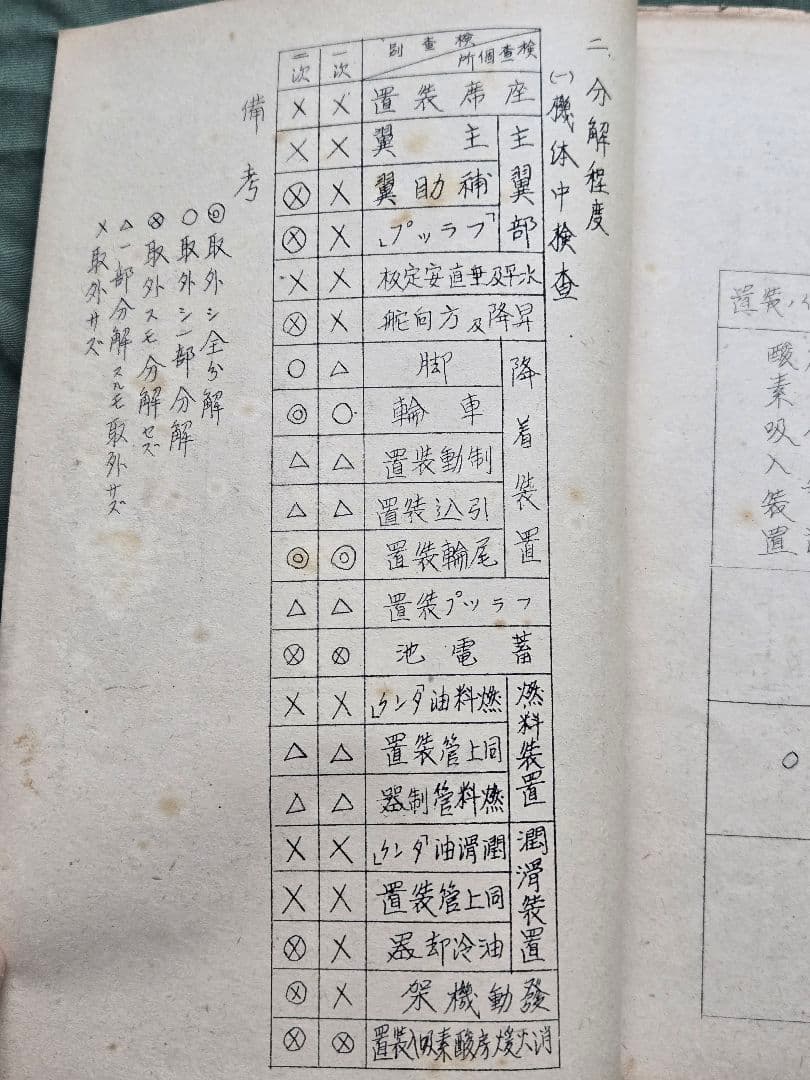 二、分解程度
(一)機体中検査
検査別 一次 二次
検査個所
座席装置 × ×
主翼部
主翼 × ×
補助翼 × ⊗
「フラップ」 × ⊗
水平及垂直安定板 × ×
昇降及方向舵 × ⊗
降着装置
脚 △ ○
車輪 ○ ◎
制動装置 △ △
引込装置 △ △
尾輪装置 ◎ ◎
フラップ装置 △ △
蓄電池 ⊗ ⊗
燃料装置
燃料油「タンク」 × ×
同上管装置 △ △
燃料管制器 △ △
潤滑装置
潤滑油「タンク」 × ×
同上管装置 × ×
油冷却器 × ⊗
發動機架 × ⊗
消火煖房酸素吸入装置 ⊗ ⊗
備考
◎取外シ全分解
○取外シ一部分解
⊗取外スモ分解セズ
△一部分解スルモ取外サズ
×取外サズ
装置
酸素吸入装置
○